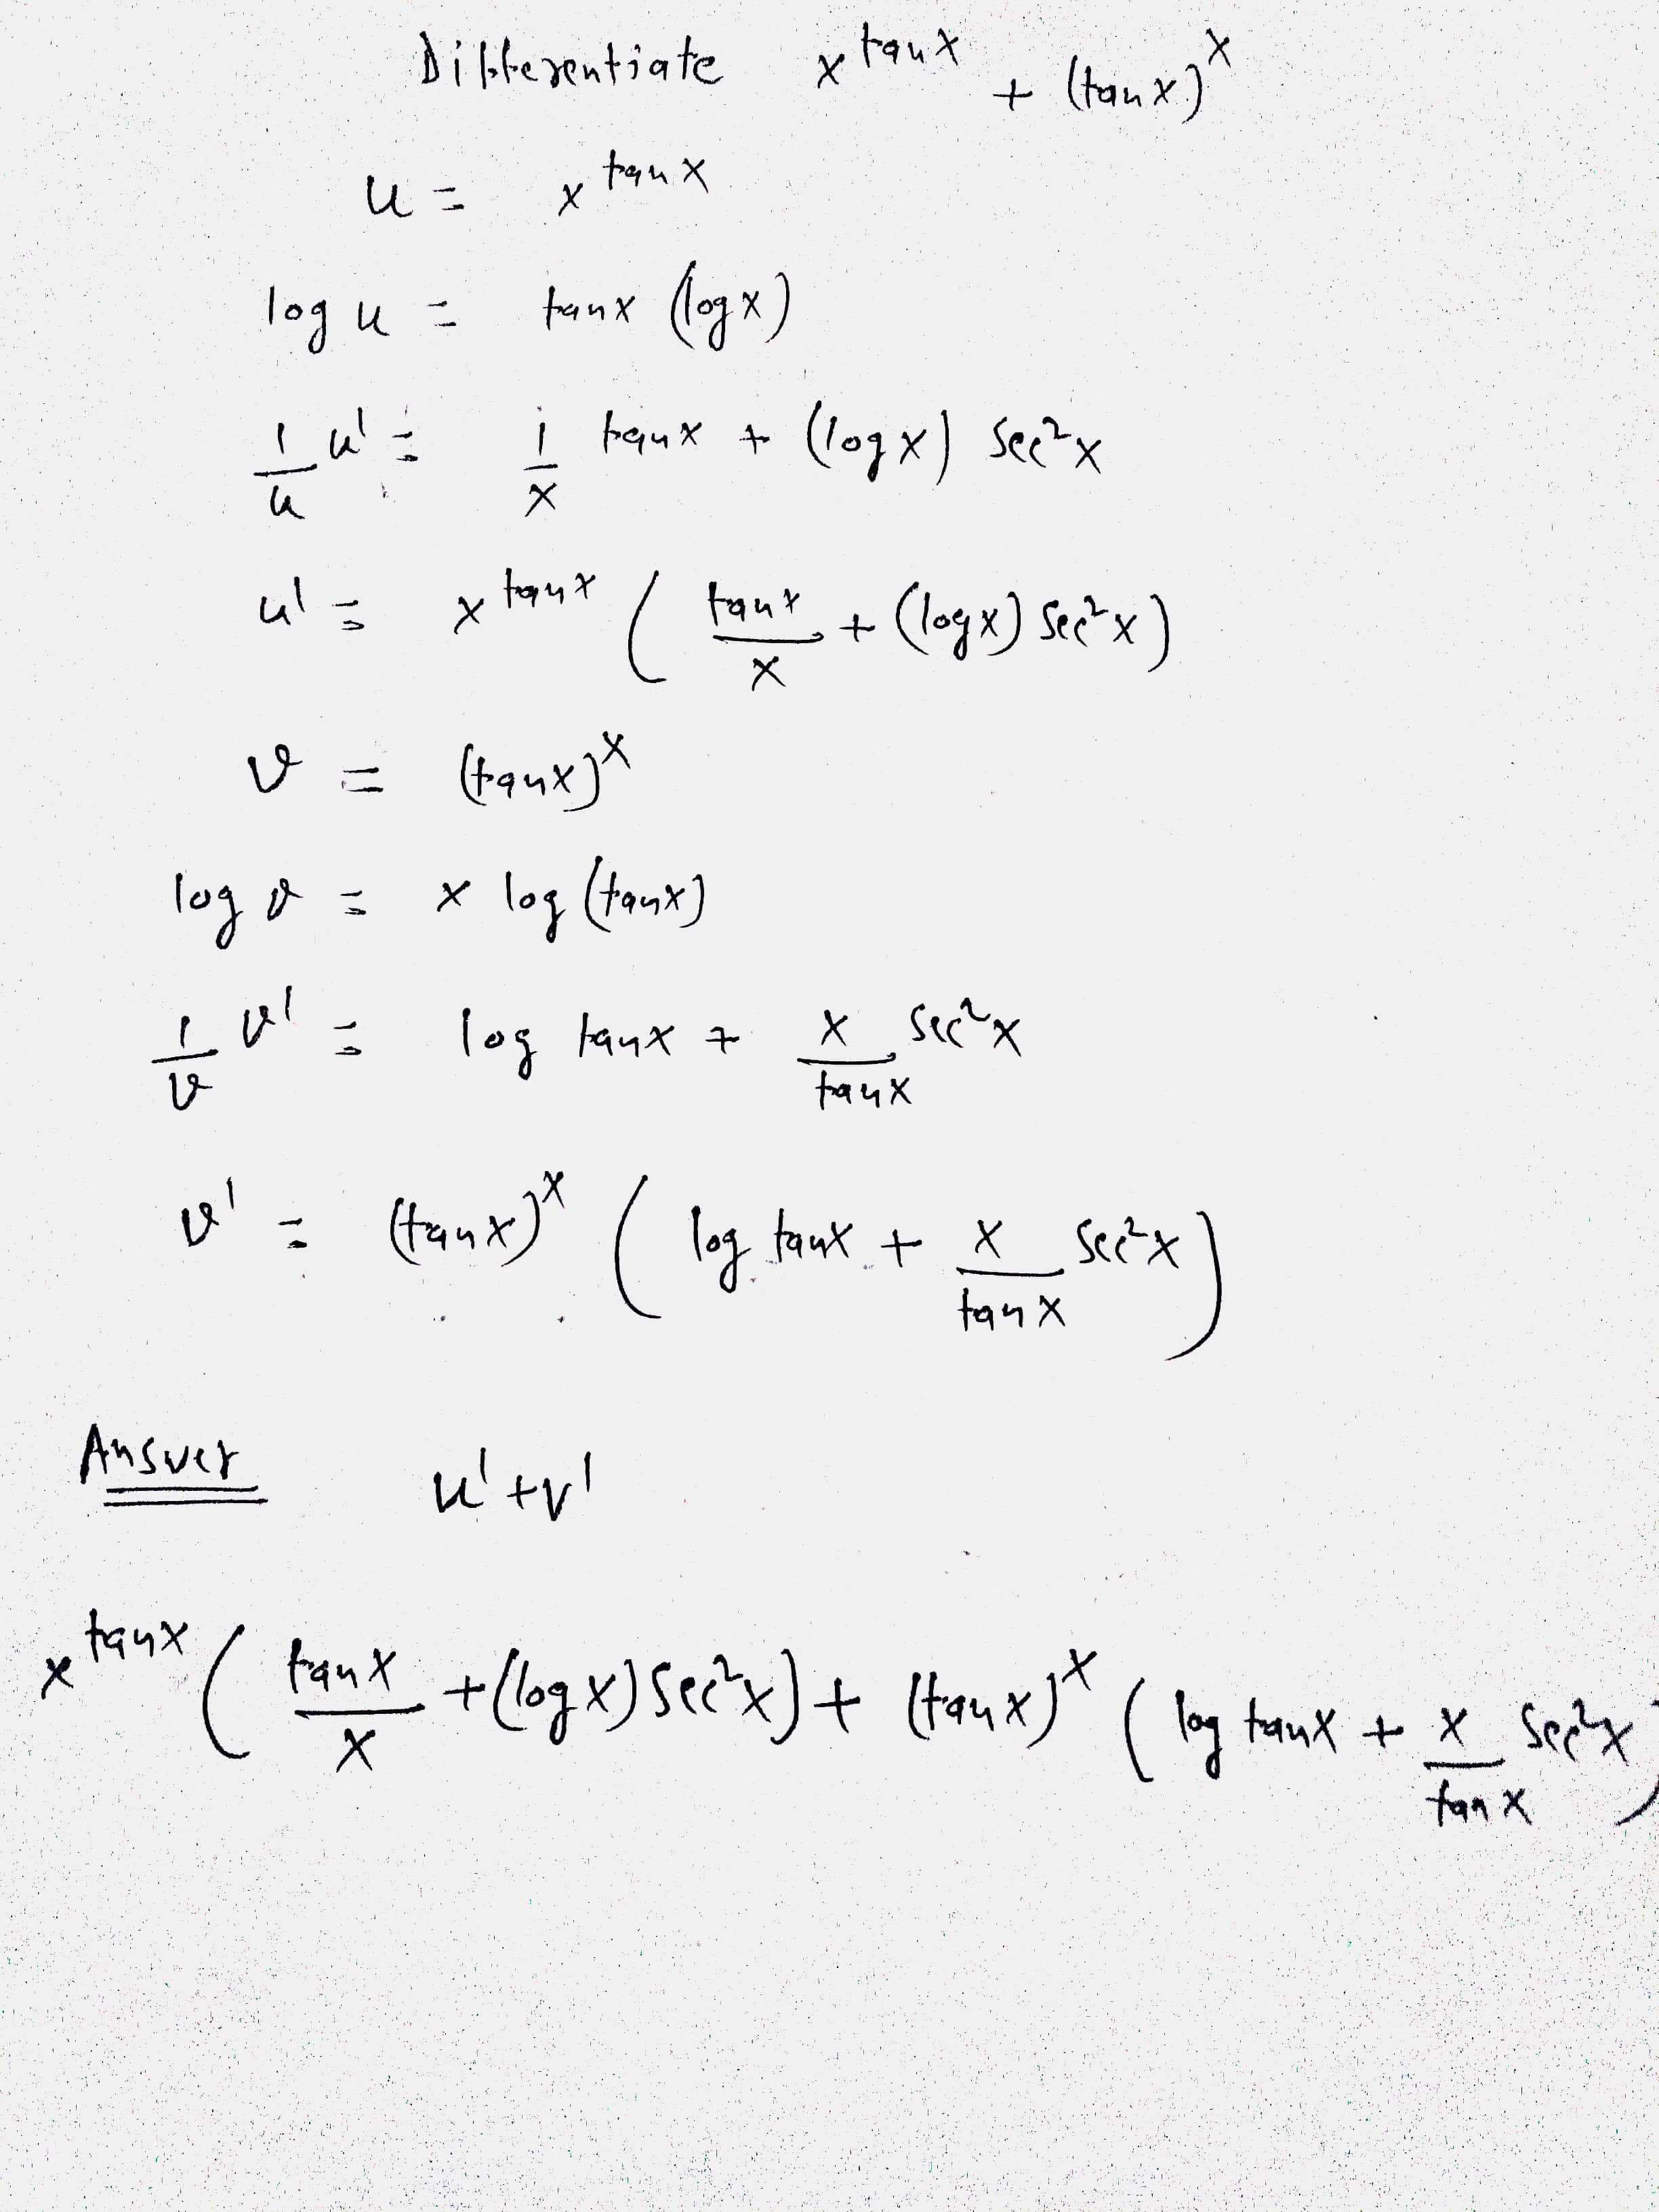 Differentiate x^tanx + (tanx)^x
u = x^tanx
log u = tanx (logx)
1/u u' = 1/x tanx + (logx) sec²x
u' = x^tanx ( tanx/x + (logx) sec²x )
v = (tanx)^x
log v = x log (tanx)
1/v v' = log tanx + x/tanx sec²x
v' = (tanx)^x ( log tanx + x/tanx sec²x )
Answer u' + v'
x^tanx ( tanx/x + (logx) sec²x ) + (tanx)^x ( log tanx + x/tanx sec²x )